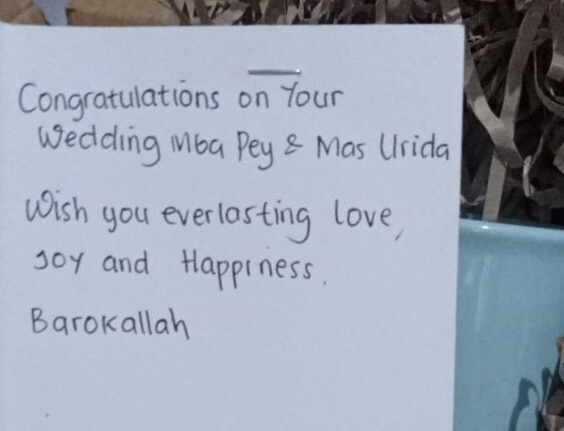 Congratulations on Your
Wedding Mba Pey & Mas Urida
Wish you everlasting love,
Joy and Happiness.
Barokallah